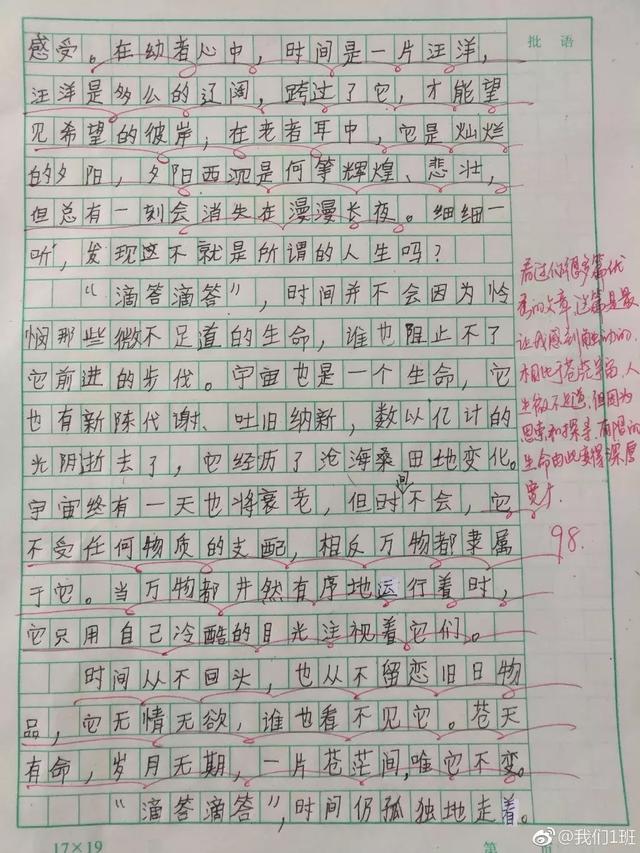 批语
感受。在幼者心中，时间是一片汪洋，
汪洋是多么的辽阔，跨过了它，才能望
见希望的彼岸；在老者耳中，它是灿烂
的夕阳，夕阳西沉是何等辉煌、悲壮，
但总有一刻会消失在漫漫长夜。细细一
听，发现这不就是所谓的人生吗？
“滴答滴答”，时间并不会因为怜
悯那些微不足道的生命，谁也阻止不了
它前进的步伐。宇宙也是一个生命，它
也有新陈代谢、吐旧纳新，数以亿计的
光阴逝去了，它经历了沧海桑田地变化。
宇宙终有一天也将衰老，但时间不会，它
不受任何物质的支配，相反万物都隶属
于它。当万物都井然有序地运行着时，
它只用自己冷酷的目光注视着它们。
时间从不回头，也从不留恋旧日物
品，它无情无欲，谁也看不见它。苍天
有命，岁月无期，一片苍茫间，唯它不变。
“滴答滴答”，时间仍孤独地走着。
看过你们很多篇优
秀的文章，这篇是最
让我感到触动的。
相比于苍茫宇宙，人
生微不足道，但因为
思索和探寻，有限的
生命由此变得深厚
宽广
98.
17×19
第 页
@我们1班